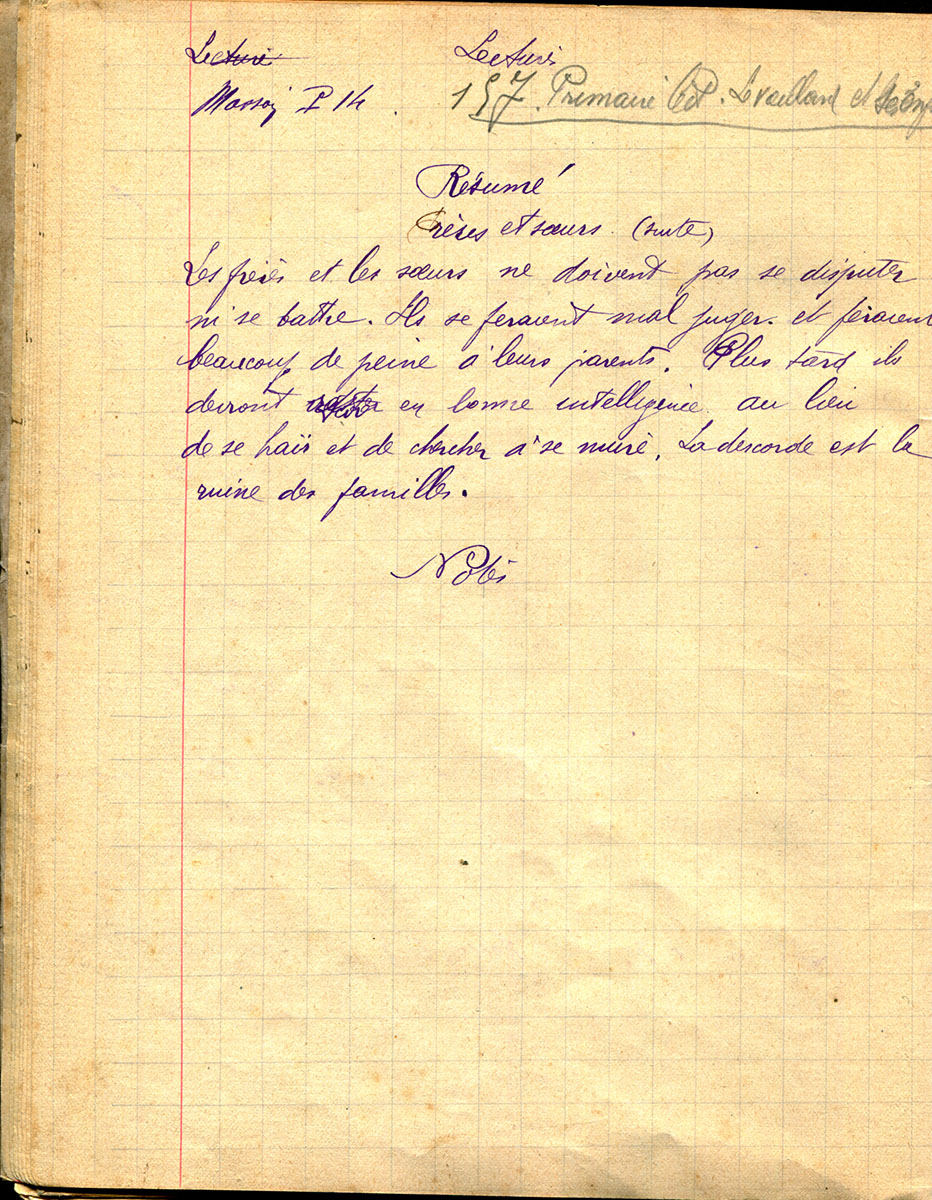 Lecture Lectures
P 14 . 157. Primaire Levaillant et
Résumé
Frères et sœurs. (suite)
Les frères et les sœurs ne doivent pas se disputer
ni se battre. Ils se feraient mal juger. et feraient
beaucoup de peine à leurs parents. Plus tard ils
devront en bonne intelligence au lieu
de se haïr et de chercher à se nuire. La descorde est la
ruine des familles.
Notes